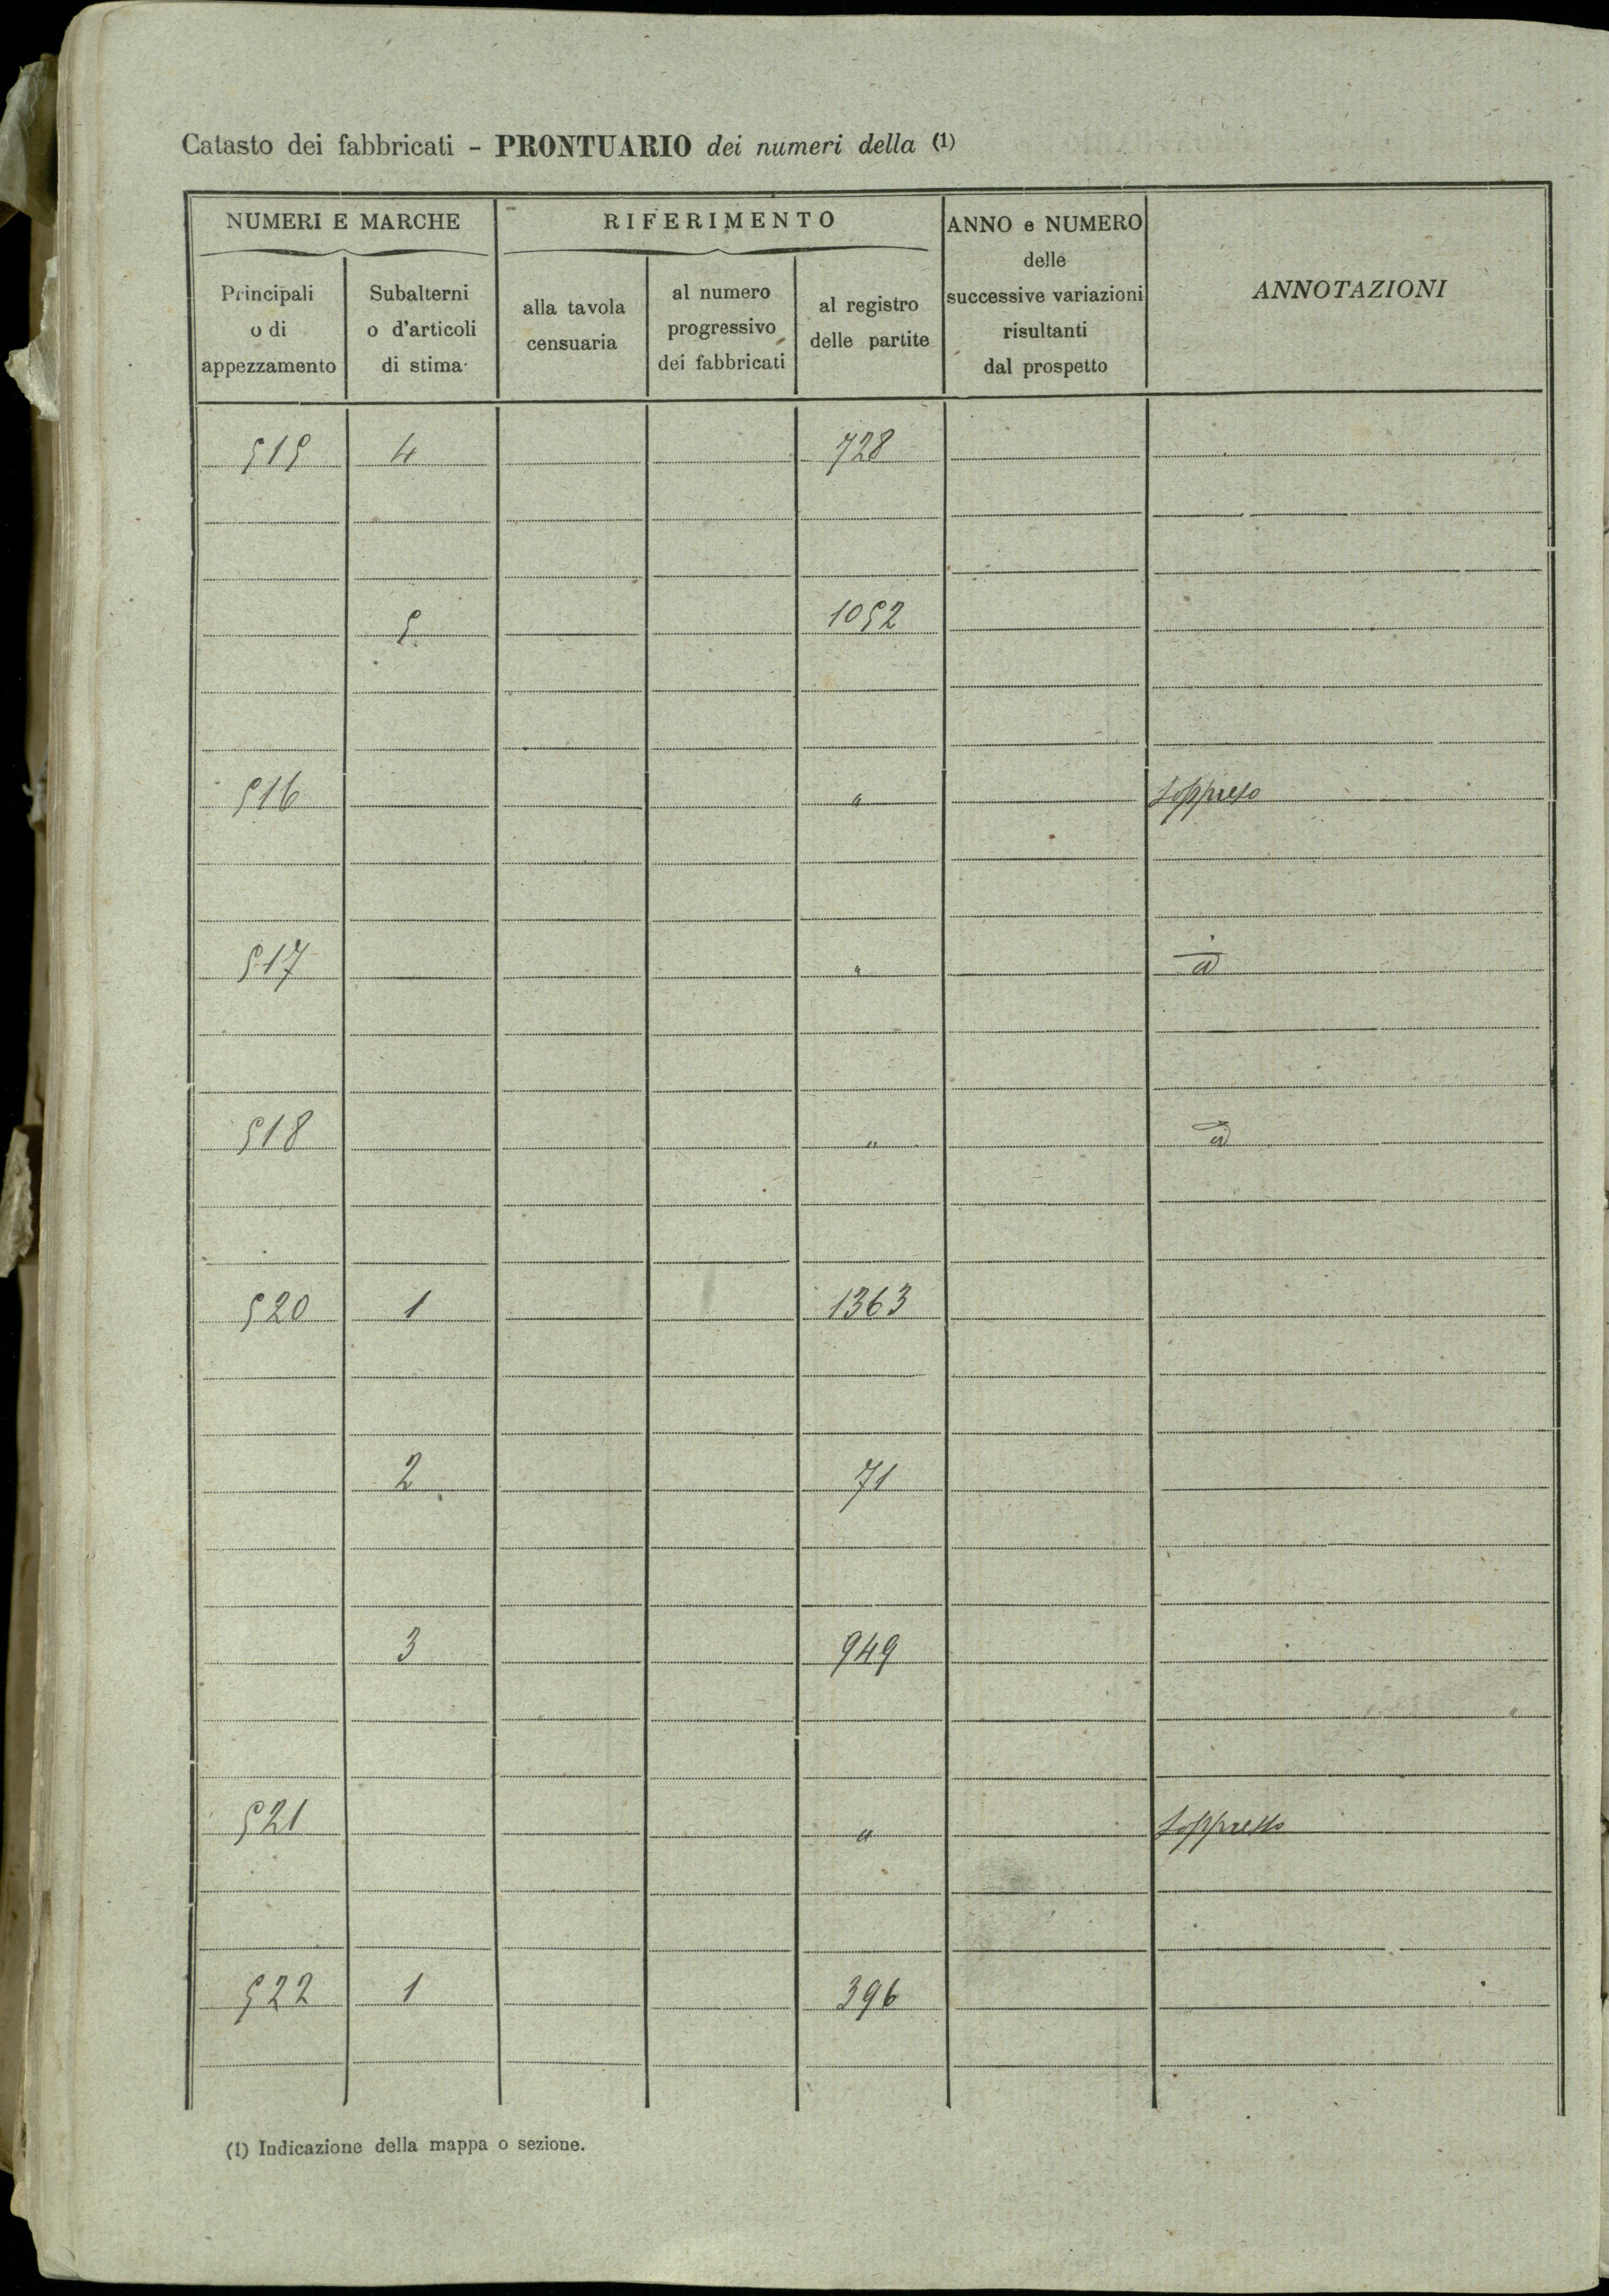 Catasto dei fabbricati - PRONTUARIO dei numeri della (1)
NUMERI E MARCHE
RIFERIMENTO
ANNO e NUMERO
delle
successive variazioni
risultanti
dal prospetto
ANNOTAZIONI
Principali
o di
appezzamento
Subalterni
o d'articoli
di stima
alla tavola
censuaria
al numero
progressivo
dei fabbricati
al registro
delle partite
515 4 728
5 1052
516 " soppresso
517 " id
518 " id
520 1 1363
2 71
3 949
521 " soppresso
522 1 396
(1) Indicazione della mappa o sezione.